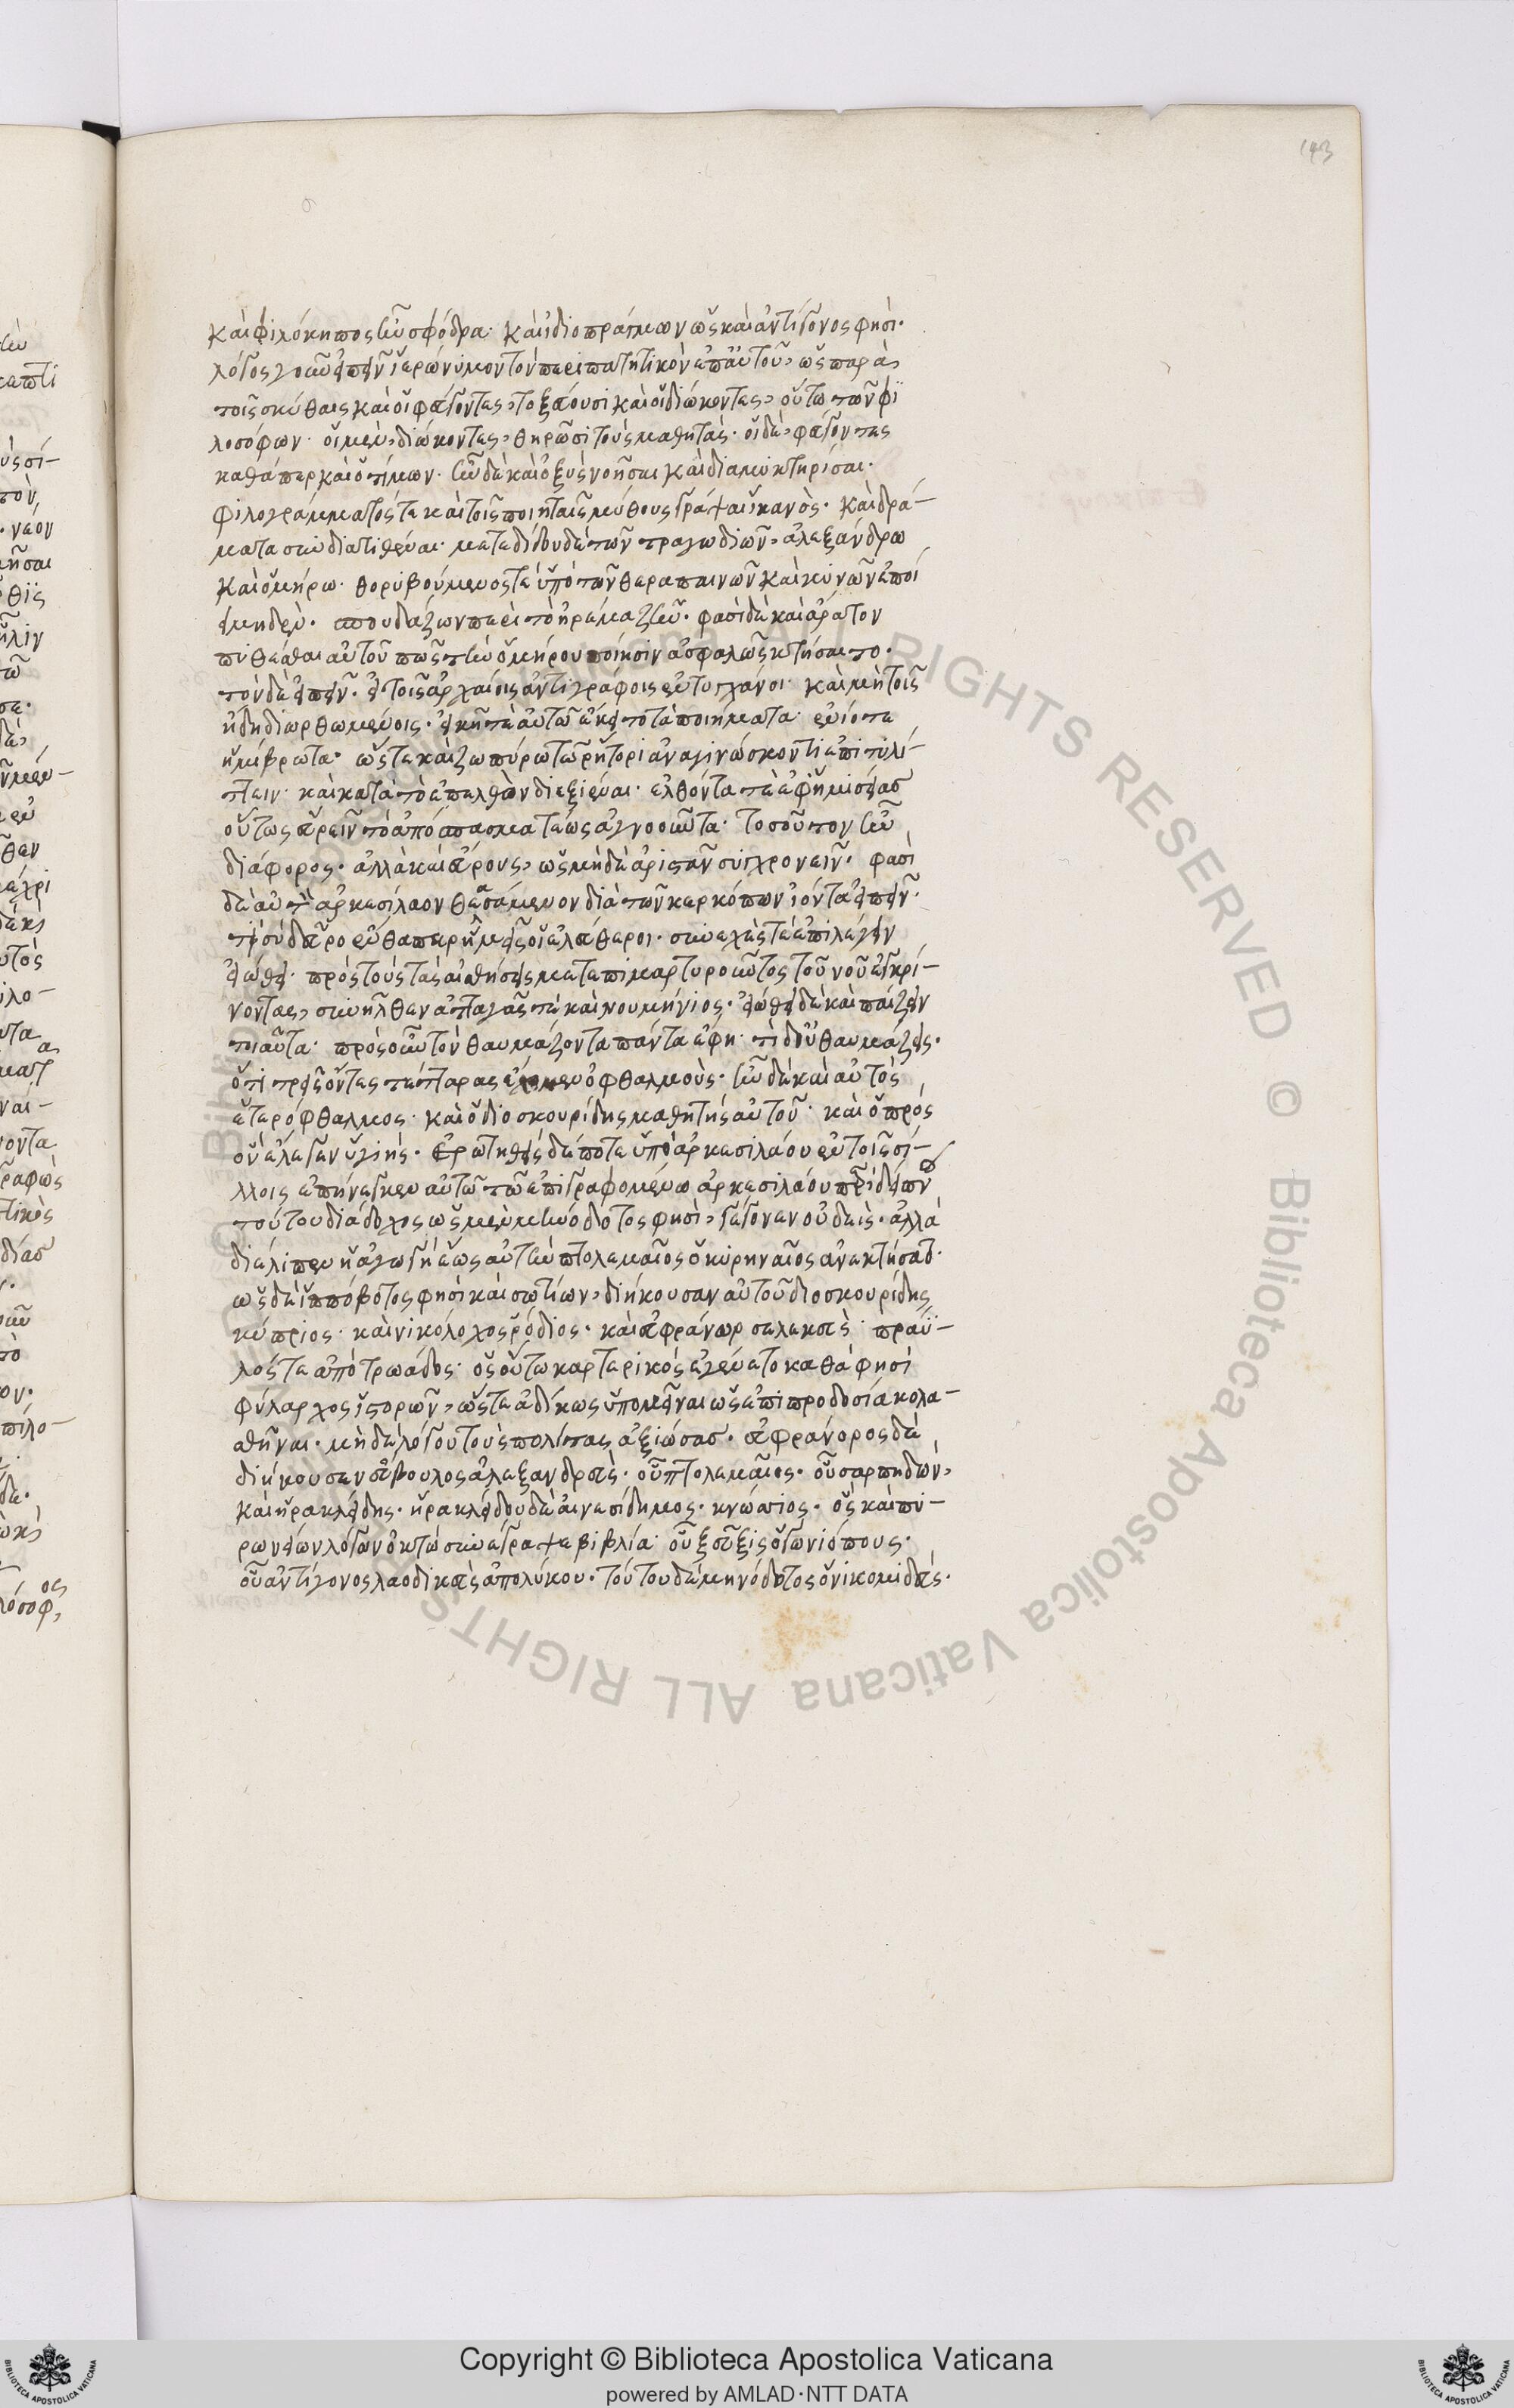 143
καὶ φιλόκηπος ἦν σφόδρα· καὶ ἰδιοπράγμων ὡς καὶ ἀντίγονος φησὶ·
λόγος γοῦν εἰπεῖν ἱερώνυμον τὸν περιπατητικὸν ἐπ' αὐτοῦ, ὡς παρὰ
τοῖς σκύθαις καὶ οἱ φεύγοντες, τοξεύουσι καὶ οἱ διώκοντες, οὕτω τῶν φι
λοσόφων· οἱ μὲν, διώκοντες, θηρῶσι τοὺς μαθητάς· οἱ δὲ, φεύγοντες
καθάπερ καὶ ὁ τίμων· ἦν δὲ καὶ ὀξὺς νοῆσαι καὶ διαμυκτηρίσαι·
φιλογράμματός τε καὶ τοῖς ποιηταῖς μύθους γράψαι ἱκανὸς· καὶ δρά-
ματα συνδιατιθέναι· μετεδίδου δὲ τῶν τραγωδιῶν, ἀλεξάνδρω
καὶ ὁμήρω· θορυβούμενος τε ὑπὸ τῶν θεραπαινῶν καὶ κυνῶν ἐποί
ει μηδὲν· σπουδάζων περὶ τὸ ἠρεμάζειν· φασὶ δὲ καὶ ἄρατον
πυθέσθαι αὐτοῦ πῶς τὴν ὁμήρου ποίησιν ἀσφαλῶς κτήσαιτο·
τὸν δὲ εἰπεῖν· εἰ τοῖς ἀρχαίοις ἀντιγράφοις ἐντυγχάνοι· καὶ μὴ τοῖς
ἤδη διωρθωμένοις· εἰκῆ τε αὐτῶ ἔκειτο τὰ ποιήματα· ἐνίοτε
ἡμίβρωτα· ὥστε καὶ ζωπύρω τῶ ῥήτορι ἀναγινώσκοντι ἐπιτυλί-
ττειν· καὶ κατὰ τὸ ἐπελθὸν διεξιέναι· ἐλθόντα τε ἐφ' ἡμισείας
οὕτως εὑρεῖν τὸ ἀπόσπασμα τέως ἀγνοοῦντα· τοσοῦτον ἦν
διάφορος· ἀλλὰ καὶ εὔρους, ὡς μηδὲ ἀριστᾶν συγχρονεῖν· φασὶ
δὲ αὐτὸν ἀρκεσίλαον θεασάμενον διὰ τῶν κερκόπων ἰόντα εἰπεῖν·
τί σὺ δεῦρο ἔνθαπερ ἡμεῖς οἱ ἐλεύθεροι· συνεχές τε ἐπιλέγειν
εἰώθει· πρὸς τοὺς τὰς αἰσθήσεις μετ' ἐπιμαρτυροῦντος τοῦ νοῦ ἐγκρί-
νοντας, συνῆλθεν ἀτταγᾶς τε καὶ νουμήνιος· εἰώθει δὲ καὶ παίζειν
τοιαῦτα· πρὸς οὖν τὸν θαυμάζοντα πάντα ἔφη· τί δ' οὐ θαυμάζεις·
ὅτι τρεῖς ὄντες τέτταρας ἔχομεν ὀφθαλμοὺς· ἦν δὲ καὶ αὐτὸς
ἑτερόφθαλμος· καὶ ὁ διοσκουρίδης μαθητὴς αὐτοῦ· καὶ ὁ πρὸς
ὃν ἔλεγεν ὑγιὴς· ἐρωτηθεὶς δέ ποτε ὑπὸ ἀρκεσιλάου ἐν τοῖς σί-
λλοις ἐπήνεγκεν αὐτῶ τῶ ἐπιγραφομένω ἀρκεσιλάου περιδείπνω
τούτου διάδοχος ὡς μὲν μηνόδοτος φησὶ, γέγονεν οὐδεὶς· ἀλλὰ
διέλιπεν ἡ ἀγωγὴ ἕως αὐτὴν πτολεμαῖος ὁ κυρηναῖος ἀνεκτήσατο·
ὡς δὲ ἱππόβοτος φησὶ καὶ σωτίων, διήκουσαν αὐτοῦ διοσκουρίδης
κύπριος· καὶ νικόλοχος ῥόδιος· καὶ εὐφράνωρ σελευκεὺς· πραΰ-
λός τε ἀπὸ τρωάδος· ὃς οὕτω καρτερικὸς ἐγένετο καθά φησὶ
φύλαρχος ἱστορῶν, ὥστε ἀδίκως ὑπομεῖναι ὡς ἐπὶ προδοσία κολα-
σθῆναι· μὴ δὲ λόγου τοὺς πολίτας ἀξιώσας· εὐφράνορος δὲ
διήκουσεν εὔβουλος ἀλεξανδρεὺς· οὗ πτολεμαῖος· οὗ σαρπηδὼν,
καὶ ἡρακλείδης· ἡρακλείδου δὲ αἰνεσίδημος· κνώσιος· ὃς καὶ πυ-
ρωνείων λόγων ὀκτὼ συνέγραψε βιβλία· οὗ ζεῦξις ὁ γωνιόπους·
οὗ ἀντίγονος λαοδικεὺς ἀπὸ λύκου· τούτου δὲ μηνόδοτος ὁ νικομιδεύς·
Copyright © Biblioteca Apostolica Vaticana
powered by AMLAD·NTT DATA